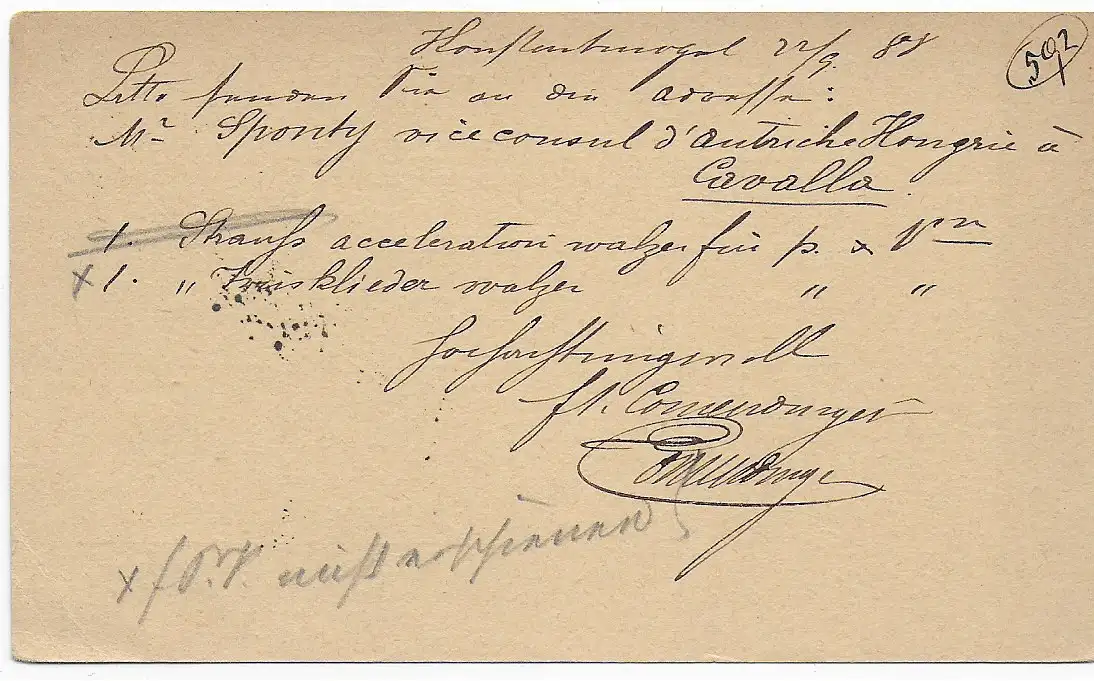 Konstantinopel 22/9 88
592
Bitte senden Sie an die adresse:
Mr Sponty viceconsul d'autriche Hongrie à
Cavalla
1. Strauß acceleration walzer für p. x
x 1. " walzer " "
hochachtungsvoll
x f nicht erschienen